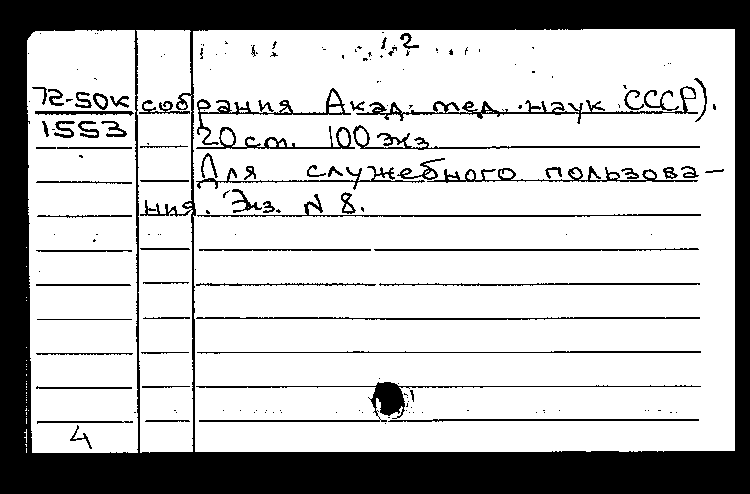 2
72-50к собрания Акад. мед. наук СССР).
1553 20 см. 100 экз.
Для служебного пользова-
ния. Экз. N 8.
4